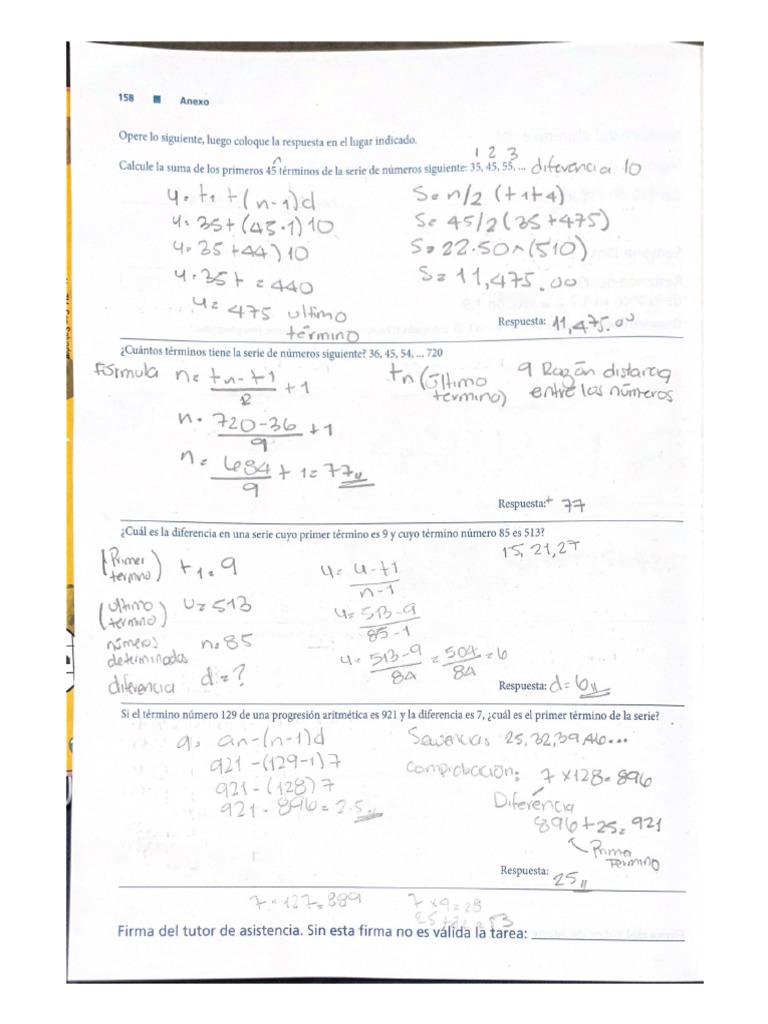 158 ■ Anexo
Opere lo siguiente, luego coloque la respuesta en el lugar indicado.
n 1 2 3
Calcule la suma de los primeros 45 términos de la serie de números siguiente: 35, 45, 55, ... diferencia 10
u= t1 + (n-1)d S= n/2 (t1+4)
u= 35+(45-1)10 S= 45/2(35+475)
u= 35 +44)10 S= 22.50 ^ (510)
u= 35+ = 440 S= 11,475.00
u= 475 ultimo
término
Respuesta: 11,475.00
¿Cuántos términos tiene la serie de números siguiente? 36, 45, 54, ... 720
Fórmula n= tn-t1/R +1 tn (Último término) 9 Razón distancia
entre los números
n= 720-36/9 +1
n= 684/9 + 1 = 77
Respuesta:+ 77
¿Cuál es la diferencia en una serie cuyo primer término es 9 y cuyo término número 85 es 513?
15, 21, 27
(Primer termino) t1= 9 u= u-t1/n-1
(ultimo término) U= 513 u= 513-9/85-1
números determinadas n= 85 u= 513-9/84 = 504/84 = 6
diferencia d=?
Respuesta: d= 6
Si el término número 129 de una progresión aritmética es 921 y la diferencia es 7, ¿cuál es el primer término de la serie?
a= an-(n-1)d 25, 32, 39, 46...
921 -(129-1)7 Comprobación: 7 x128= 896
921 -(128)7 Diferencia
921 - 896 = 2.5 896+25= 921
Primer
Termino
Respuesta: 25
7 * 127= 889 7 x9=28
53
Firma del tutor de asistencia. Sin esta firma no es válida la tarea: